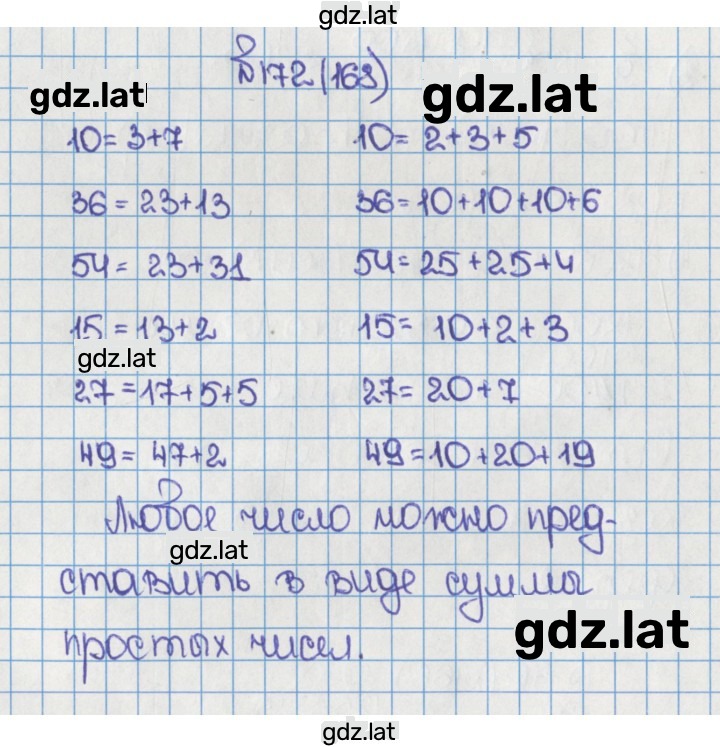 gdz.lat
№172 (168)
gdz.lat gdz.lat
10 = 3+7 10 = 2+3+5
36 = 23+13 36 = 10+10+10+6
54 = 23+31 54 = 25+25+4
15 = 13+2 15 = 10+2+3
gdz.lat
27 = 17+5+5 27 = 20+7
49 = 47+2 49 = 10+20+19
Любое число можно пред-
gdz.lat
ставить в виде суммы
gdz.lat
простых чисел.
gdz.lat